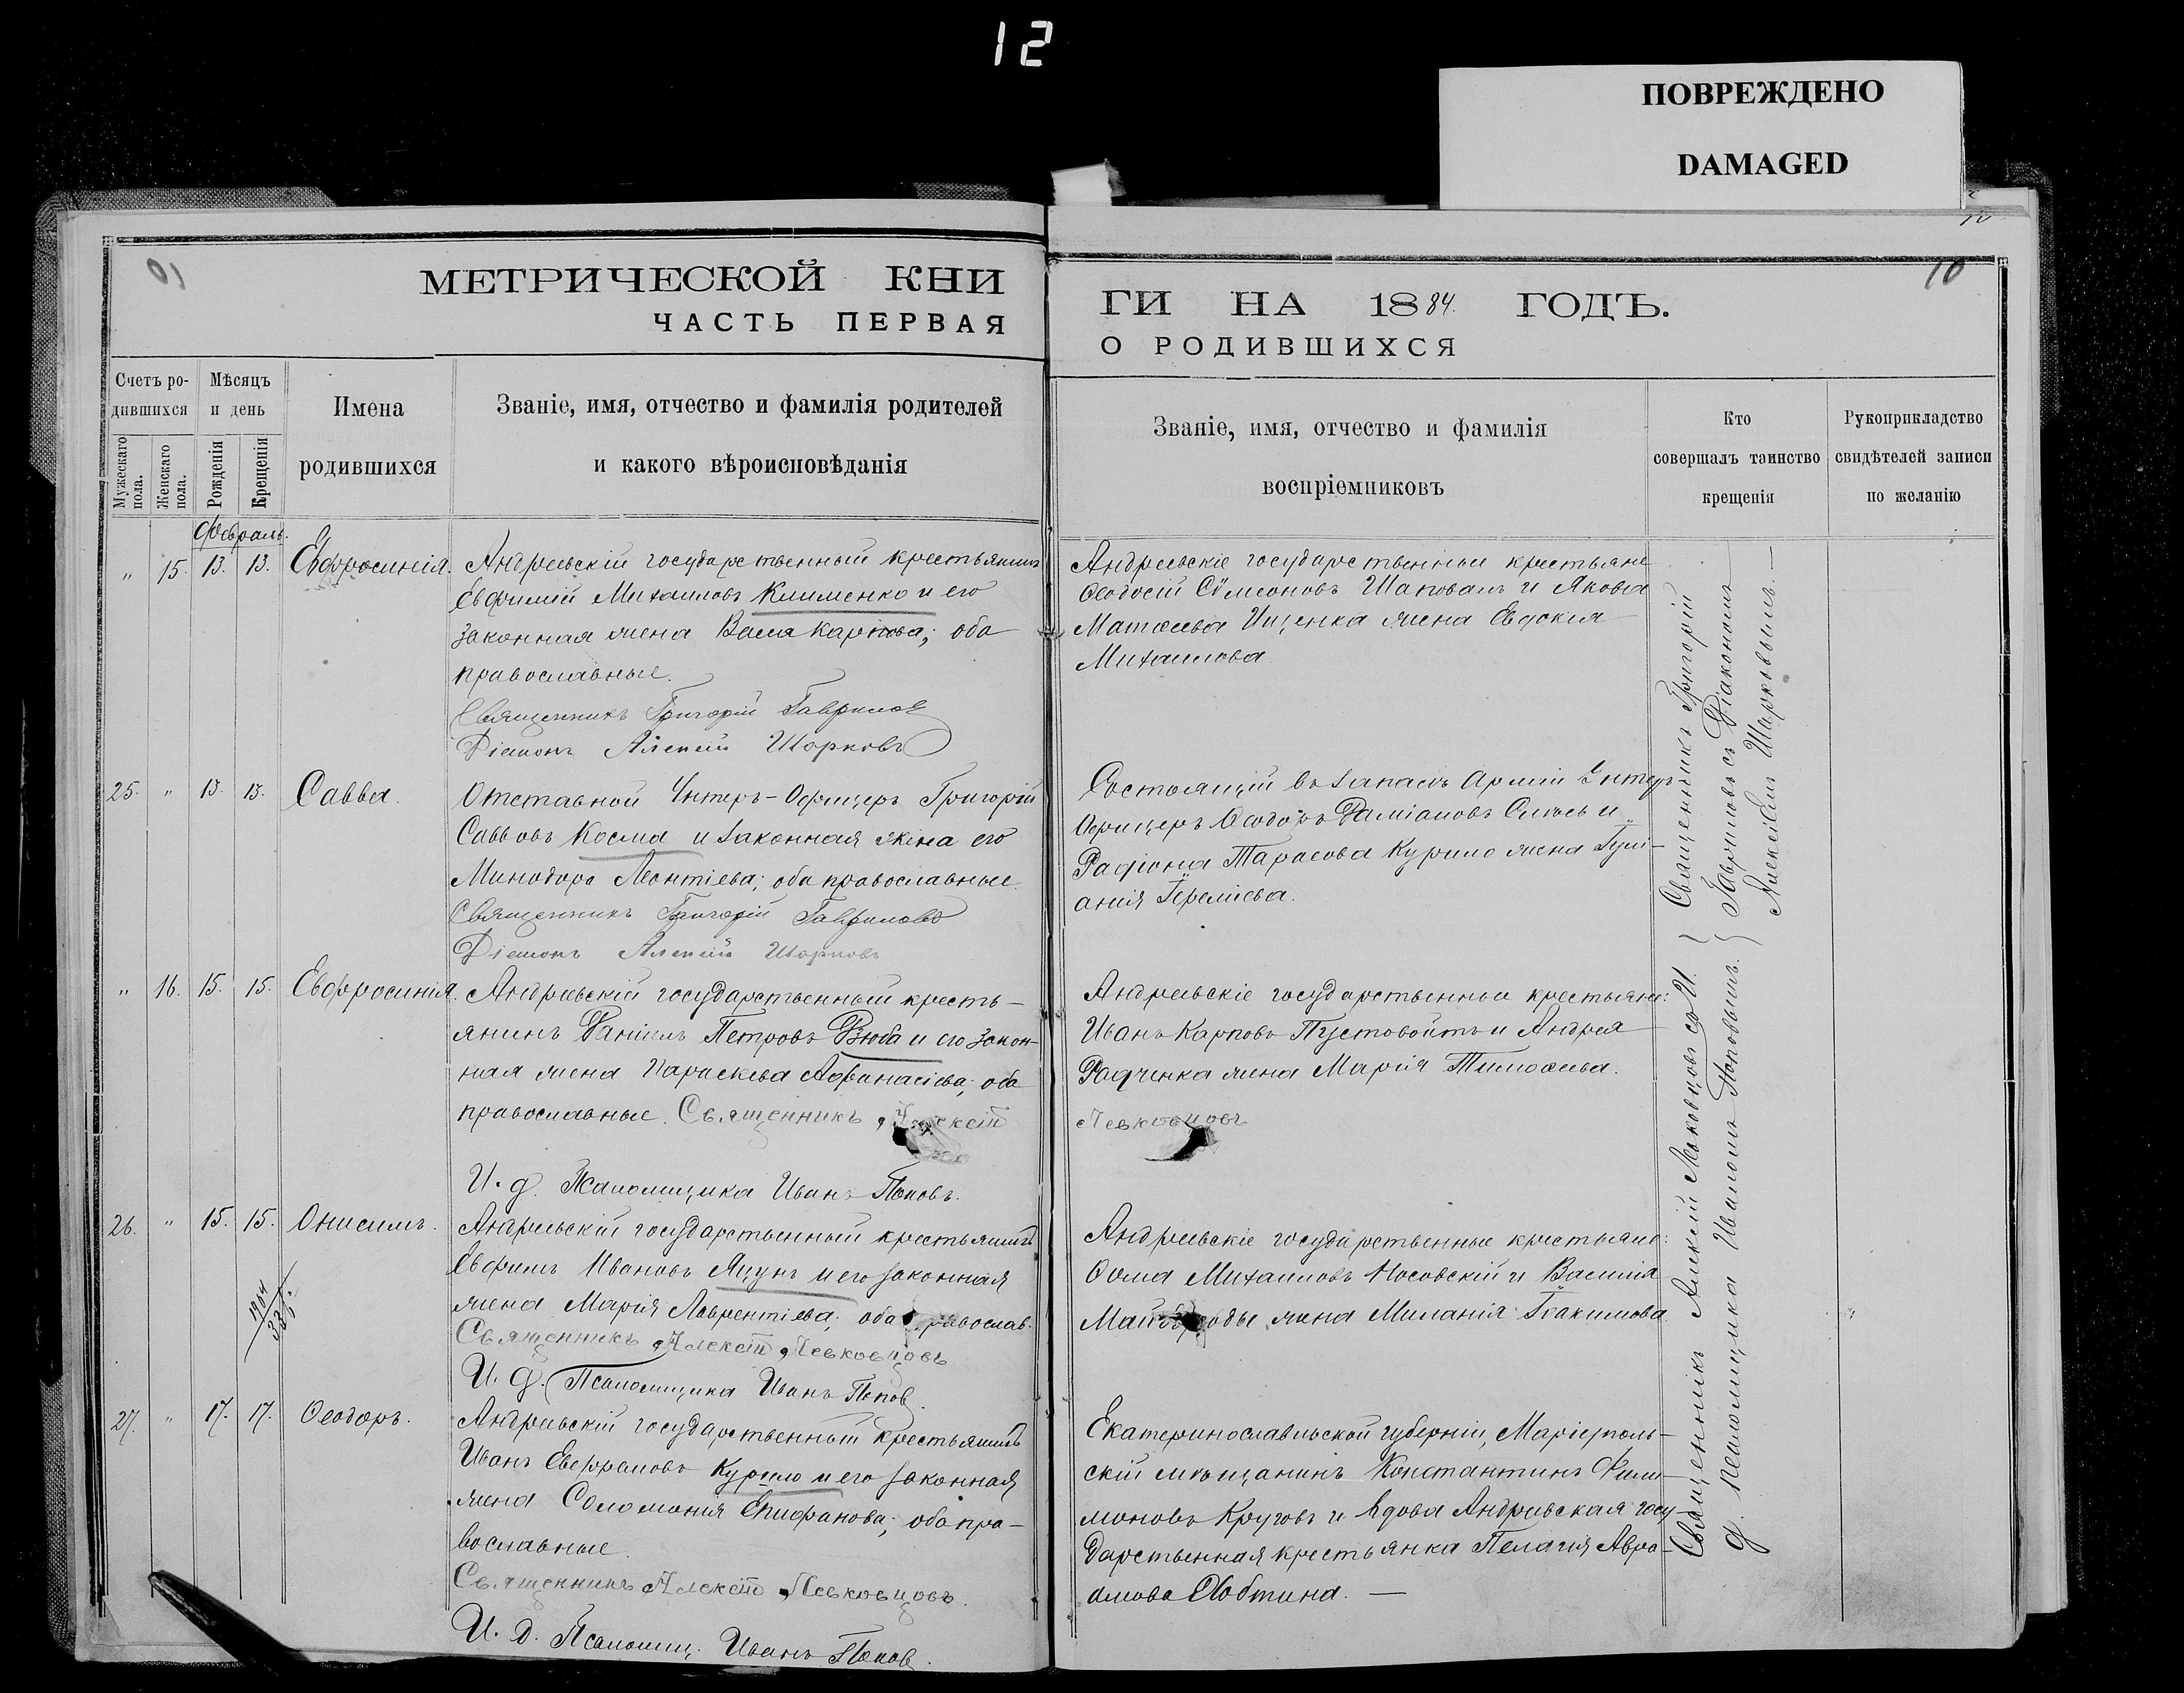 12
ПОВРЕЖДЕНО
DAMAGED
10
МЕТРИЧЕСКОЙ КНИ
ЧАСТЬ ПЕРВАЯ
Счетъ ро-
дившихся
Мужескаго пола.
Женскаго пола.
Мѣсяцъ
и день
Рожденія
Крещенія
Имена
родившихся
Званіе, имя, отчество и фамилія родителей
и какого вѣроисповѣданія
Февраль.
" 15. 13. 13. Евфросинія. Андреевскій государственный крестьянинъ
Евфимій Михаиловъ Клименко и его
законная жена Васса Карпова; оба
православные.
Священникъ Григорій Гавриловъ
Діаконъ Алексій Шарковъ
25. " 13. 13. Савва. Отставной Унтеръ-Офицеръ Григорій
Саввовъ Косма и законная жена его
Минодора Леонтіева; оба православные.
Священникъ Григорій Гавриловъ
Діаконъ Алексій Шарковъ
" 16. 15. 15. Евфросинія. Андреевскій государственный кресть-
янинъ Даніилъ Петровъ Дзюба и его закон-
ная жена Параскева Афанасіева; оба
православные. Священникъ Алексій
И. д. Псаломщика Иванъ Поповъ.
26. " 15. 15. Онисимъ. Андреевскій государственный крестьянинъ
Евфимъ Ивановъ Яцунъ и его законная
жена Марія Лаврентіева; оба православ.
Священникъ Алексій Левковцовъ
И. д. Псаломщика Иванъ Попов.
27. " 17. 17. Ѳеодоръ. Андреевскій государственный крестьянинъ
Иванъ Евефрамовъ Курило и его законная
жена Соломонія Епифанова; оба пра-
вославные.
Священникъ Алексій Левковцовъ.
И. д. Псаломщ. Иванъ Попов.
10
ГИ НА 1884. ГОДЪ.
О РОДИВШИХСЯ
Званіе, имя, отчество и фамилія
воспріемниковъ
Кто
совершалъ таинство
крещенія
Рукоприкладство
свидѣтелей записи
по желанію
Андреевскіе государственные крестьяне
Ѳеодосій Сѵмеоновъ Шаповалъ и Якова
Матѳеева Ищенка жена Евдокія
Михаилова
Состоящій въ запасѣ арміи Унтеръ-
Офицеръ Ѳеодоръ Даміановъ и
Радіона Тарасова Курило жена Іулі-
анія Іереміева.
Андреевскіе государственные крестьяне:
Иванъ Карповъ Пустовойтъ и Андрея
Радченка жена Марія Тимоѳеева.
Левковцовъ
Андреевскіе государственные крестьяне:
Ѳома Михаиловъ Носовскій и Василія
Майбороды жена Миланія Іоакимова.
Екатеринославльской губерніи, Маріуполь-
скій мѣщанинъ Константинъ Фили-
моновъ Круговъ и вдова Андреевская госу-
дарственная крестьянка Пелагія Авра-
амова
Священникъ Григорій
Гавриловъ съ Діакономъ
Алексіемъ Шарковымъ. —
Священникъ Алексій Левковцовъ со И.
д. псаломщика Иваномъ Поповымъ.